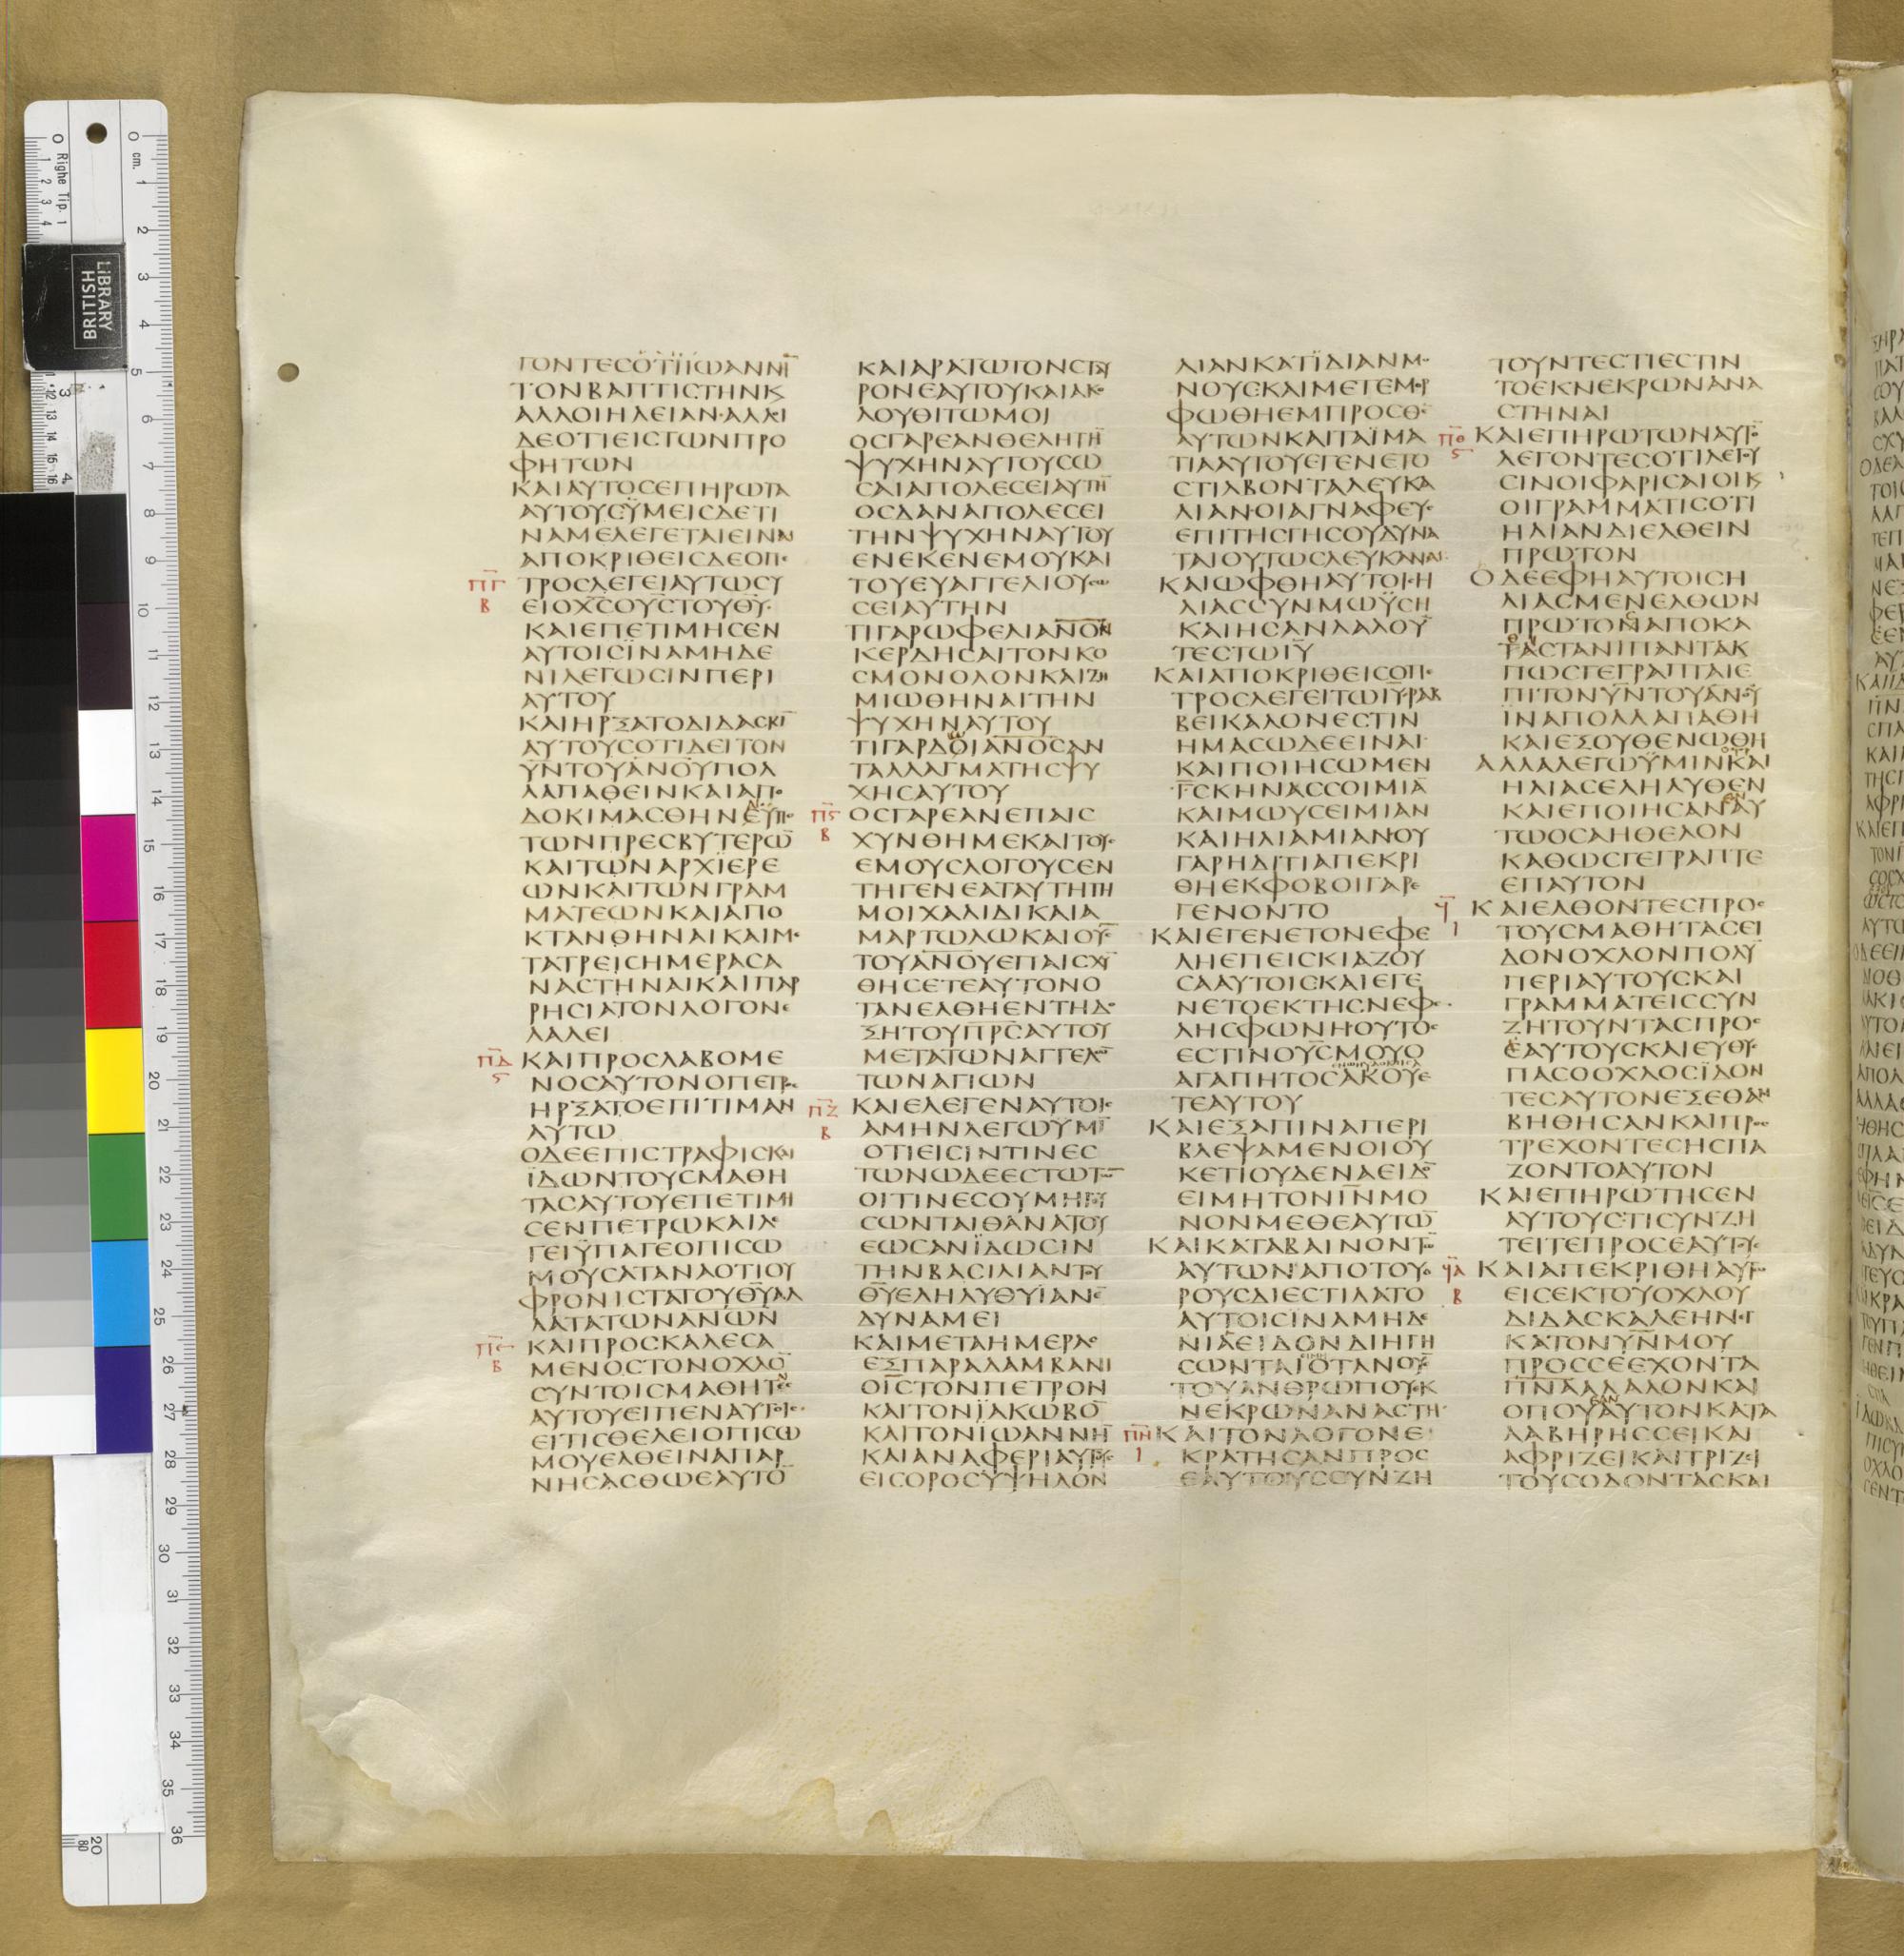 ΓΟΝΤΕϹΟΤΙΪΩΑΝΝΗ̅
ΤΟΝΒΑΠΤΙϹΤΗΝΚϗ
ΑΛΛΟΙΗΛΕΙΑΝΑΛΛΟΙ
ΔΕΟΤΙΕΙϹΤΩΝΠΡΟ
ΦΗΤΩΝ
ΚΑΙΑΥΤΟϹΕΠΗΡΩΤΑ
ΑΥΤΟΥϹΫΜΕΙϹΔΕΤΙ
ΝΑΜΕΛΕΓΕΤΑΙΕΙΝΑΙ
ΑΠΟΚΡΙΘΕΙϹΔΕΟΠΕ
ΤΡΟϹΛΕΓΕΙΑΥΤΩϹΥ
ΕΙΟΧ̅ϹΟΥϹΤΟΥΘΥ̅
ΚΑΙΕΠΕΤΙΜΗϹΕΝ
ΑΥΤΟΙϹΪΝΑΜΗΔΕ
ΝΙΛΕΓΩϹΙΝΠΕΡΙ
ΑΥΤΟΥ
ΚΑΙΗΡΞΑΤΟΔΙΔΑϹΚΙ̅
ΑΥΤΟΥϹΟΤΙΔΕΙΤΟΝ
Υ̅Ν̅ΤΟΥΑ̅Ν̅Ο̅Υ̅ΠΟΛ
ΛΑΠΑΘΕΙΝΚΑΙΑΠΟ
ΔΟΚΙΜΑϹΘΗΝΕΫΠΟ
ΤΩΝΠΡΕϹΒΥΤΕΡΩ̅
ΚΑΙΤΩΝΑΡΧΪΕΡΕ
ΩΝΚΑΙΤΩΝΓΡΑΜ
ΜΑΤΕΩΝΚΑΙΑΠΟ
ΚΤΑΝΘΗΝΑΙΚΑΙΜΕ
ΤΑΤΡΕΙϹΗΜΕΡΑϹΑ
ΝΑϹΤΗΝΑΙΚΑΙΠΑΡ
ΡΗϹΙΑΤΟΝΛΟΓΟΝΕ
ΛΑΛΕΙ
ΚΑΙΠΡΟϹΛΑΒΟΜΕ
ΝΟϹΑΥΤΟΝΟΠΕΤΡΟϹ
ΗΡΞΑΤΟΕΠΙΤΙΜΑΝ
ΑΥΤΩ
ΟΔΕΕΠΙϹΤΡΑΦΙϹΚΑΙ
ΪΔΩΝΤΟΥϹΜΑΘΗ
ΤΑϹΑΥΤΟΥΕΠΕΤΙΜΗ
ϹΕΝΠΕΤΡΩΚΑΙΛΕ
ΓΕΙΫΠΑΓΕΟΠΙϹΩ
ΜΟΥϹΑΤΑΝΑΟΤΙΟΥ
ΦΡΟΝΙϹΤΑΤΟΥΘΥ̅ΑΛ
ΛΑΤΑΤΩΝΑΝ̅Ω̅Ν̅
ΚΑΙΠΡΟϹΚΑΛΕϹΑ
ΜΕΝΟϹΤΟΝΟΧΛΟ̅
ϹΥΝΤΟΙϹΜΑΘΗΤΕϹ
ΑΥΤΟΥΕΙΠΕΝΑΥΤΟΙϹ
ΕΙΤΙϹΘΕΛΕΙΟΠΙϹΩ
ΜΟΥΕΛΘΕΙΝΑΠΑΡ
ΝΗϹΑϹΘΩΕΑΥΤΟ̅
ΚΑΙΑΡΑΤΩΤΟΝϹΤΑΥ
ΡΟΝΕΑΥΤΟΥΚΑΙΑΚΟ
ΛΟΥΘΙΤΩΜΟΙ
ΟϹΓΑΡΕΑΝΘΕΛΗΤΗ̅
ΨΥΧΗΝΑΥΤΟΥϹΩ
ϹΑΙΑΠΟΛΕϹΕΙΑΥΤΗ̅
ΟϹΔΑΝΑΠΟΛΕϹΕΙ
ΤΗΝΨΥΧΗΝΑΥΤΟΥ
ΕΝΕΚΕΝΕΜΟΥΚΑΙ
ΤΟΥΕΥΑΓΓΕΛΙΟΥϹΩ
ϹΕΙΑΥΤΗΝ
ΤΙΓΑΡΩΦΕΛΙΑΝ̅Ο̅Ν̅
ΚΕΡΔΗϹΑΙΤΟΝΚΟ
ϹΜΟΝΟΛΟΝΚΑΙΖΗ
ΜΙΩΘΗΝΑΙΤΗΝ
ΨΥΧΗΝΑΥΤΟΥ
ΤΙΓΑΡΔΟΙΑΝ̅Ο̅Ϲ̅ΑΝ
ΤΑΛΛΑΓΜΑΤΗϹΨΥ
ΧΗϹΑΥΤΟΥ
ΟϹΓΑΡΕΑΝΕΠΑΙϹ
ΧΥΝΘΗΜΕΚΑΙΤΟΥϹ
ΕΜΟΥϹΛΟΓΟΥϹΕΝ
ΤΗΓΕΝΕΑΤΑΥΤΗΤΗ
ΜΟΙΧΑΛΙΔΙΚΑΙΑ
ΜΑΡΤΩΛΩΚΑΙΟΥϹ
ΤΟΥΑ̅Ν̅Ο̅Υ̅ΕΠΑΙϹΧΥ̅
ΘΗϹΕΤΕΑΥΤΟΝΟ
ΤΑΝΕΛΘΗΕΝΤΗΔΟ
ΞΗΤΟΥΠ̅Ρ̅Ϲ̅ΑΥΤΟΥ
ΜΕΤΑΤΩΝΑΓΓΕΛΩ̅
ΤΩΝΑΓΙΩΝ
ΚΑΙΕΛΕΓΕΝΑΥΤΟΙϹ
ΑΜΗΝΛΕΓΩΫΜΙ̅
ΟΤΙΕΙϹΙΝΤΙΝΕϹ
ΤΩΝΩΔΕΕϹΤΩΤΩ̅
ΟΙΤΙΝΕϹΟΥΜΗΓΕΥ
ϹΩΝΤΑΙΘΑΝΑΤΟΥ
ΕΩϹΑΝΪΔΩϹΙΝ
ΤΗΝΒΑϹΙΛΙΑΝΤΟΥ
ΘΥ̅ΕΛΗΛΥΘΥΙΑΝΕ̅
ΔΥΝΑΜΕΙ
ΚΑΙΜΕΤΑΗΜΕΡΑϹ
ΕΞΠΑΡΑΛΑΜΒΑΝΙ
ΟΙ̅Ϲ̅ΤΟΝΠΕΤΡΟΝ
ΚΑΙΤΟΝΪΑΚΩΒΟ̅
ΚΑΙΤΟΝΙΩΑΝΝΗ̅
ΚΑΙΑΝΑΦΕΡΙΑΥΤΟΥϹ
ΕΙϹΟΡΟϹΥΨΗΛΟΝ
ΛΙΑΝΚΑΤΪΔΙΑΝΜΟ
ΝΟΥϹΚΑΙΜΕΤΕΜΟΡ
ΦΩΘΗΕΜΠΡΟϹΘΕ̅
ΑΥΤΩΝΚΑΙΤΑΪΜΑ
ΤΙΑΑΥΤΟΥΕΓΕΝΕΤΟ
ϹΤΙΛΒΟΝΤΑΛΕΥΚΑ
ΛΙΑΝΟΙΑΓΝΑΦΕΥϹ
ΕΠΙΤΗϹΓΗϹΟΥΔΥΝΑ
ΤΑΙΟΥΤΩϹΛΕΥΚΑΝΑΙ
ΚΑΙΩΦΘΗΑΥΤΟΙϹΗ
ΛΙΑϹϹΥΝΜΩΫϹΗ
ΚΑΙΗϹΑΝΛΑΛΟΥ̅
ΤΕϹΤΩΙΥ̅
ΚΑΙΑΠΟΚΡΙΘΕΙϹΟΠΕ
ΤΡΟϹΛΕΓΕΙΤΩΙΥ̅ΡΑΒ
ΒΕΙΚΑΛΟΝΕϹΤΙΝ
ΗΜΑϹΩΔΕΕΙΝΑΙ
ΚΑΙΠΟΙΗϹΩΜΕΝ
Γ̅ϹΚΗΝΑϹϹΟΙΜΙΑ̅
ΚΑΙΜΩΥϹΕΙΜΙΑΝ
ΚΑΙΗΛΙΑΜΙΑΝΟΥ
ΓΑΡΗΔΙΤΙΑΠΕΚΡΙ
ΘΗΕΚΦΟΒΟΙΓΑΡΕ
ΓΕΝΟΝΤΟ
ΚΑΙΕΓΕΝΕΤΟΝΕΦΕ
ΛΗΕΠΕΙϹΚΙΑΖΟΥ
ϹΑΑΥΤΟΙϹΚΑΙΕΓΕ
ΝΕΤΟΕΚΤΗϹΝΕΦΕ
ΛΗϹΦΩΝΗΟΥΤΟϹ
ΕϹΤΙΝΟΥ̅Ϲ̅ΜΟΥΟ
ΑΓΑΠΗΤΟϹΑΚΟΥΕ
ΤΕΑΥΤΟΥ
ΚΑΙΕΞΑΠΙΝΑΠΕΡΙ
ΒΛΕΨΑΜΕΝΟΙΟΥ
ΚΕΤΙΟΥΔΕΝΑΕΙΔΟ̅
ΕΙΜΗΤΟΝΙ̅Ν̅ΜΟ
ΝΟΝΜΕΘΕΑΥΤΩ̅
ΚΑΙΚΑΤΑΒΑΙΝΟΝΤΩ̅
ΑΥΤΩΝΑΠΟΤΟΥΟ
ΡΟΥϹΔΙΕϹΤΙΛΑΤΟ
ΑΥΤΟΙϹΙΝΑΜΗΔΕ
ΝΙΑΕΙΔΟΝΔΙΗΓΗ
ϹΩΝΤΑΙΟΤΑΝΟΥ̅Ϲ̅
ΤΟΥΑΝΘΡΩΠΟΥΕΚ
ΝΕΚΡΩΝΑΝΑϹΤΗ
ΚΑΙΤΟΝΛΟΓΟΝΕ
ΚΡΑΤΗϹΑΝΠΡΟϹ
ΕΑΥΤΟΥϹϹΥΝΖΗ
ΤΟΥΝΤΕϹΤΙΕϹΤΙΝ
ΤΟΕΚΝΕΚΡΩΝΑΝΑ
ϹΤΗΝΑΙ
ΚΑΙΕΠΗΡΩΤΩΝΑΥΤΟ̅
ΛΕΓΟΝΤΕϹΟΤΙΛΕΓΟΥ
ϹΙΝΟΙΦΑΡΙϹΑΙΟΙΚϗ
ΟΙΓΡΑΜΜΑΤΙϹΟΤΙ
ΗΛΙΑΝΔΙΕΛΘΕΙΝ
ΠΡΩΤΟΝ
ΟΔΕΕΦΗΑΥΤΟΙϹΗ
ΛΙΑϹΜΕΝΕΛΘΩΝ
ΠΡΩΤΟΝΑΠΟΚΑ
ΤΑϹΤΑΝΙΠΑΝΤΑΚ
ΠΩϹΓΕΓΡΑΠΤΑΙΕ
ΠΙΤΟΝΥ̅Ν̅ΤΟΥΑ̅Ν̅Ο̅Υ̅
ΪΝΑΠΟΛΛΑΠΑΘΗ
ΚΑΙΕΞΟΥΘΕΝΩΘΗ
ΑΛΛΑΛΕΓΩΫΜΙΝΚΑΙ
ΗΛΙΑϹΕΛΗΛΥΘΕΝ
ΚΑΙΕΠΟΙΗϹΑΝΑΥ
ΤΩΟϹΑΗΘΕΛΟΝ
ΚΑΘΩϹΓΕΓΡΑΠΤΕ
ΕΠΑΥΤΟΝ
ΚΑΙΕΛΘΟΝΤΕϹΠΡΟϹ
ΤΟΥϹΜΑΘΗΤΑϹΕΙ
ΔΟΝΟΧΛΟΝΠΟΛΥ̅
ΠΕΡΙΑΥΤΟΥϹΚΑΙ
ΓΡΑΜΜΑΤΕΙϹϹΥΝ
ΖΗΤΟΥΝΤΑϹΠΡΟϹ
ΕΑΥΤΟΥϹΚΑΙΕΥΘΥϹ
ΠΑϹΟΟΧΛΟϹΪΔΟΝ
ΤΕϹΑΥΤΟΝΕΞΕΘΑΜ
ΒΗΘΗϹΑΝΚΑΙΠΡΟϹ
ΤΡΕΧΟΝΤΕϹΗϹΠΑ
ΖΟΝΤΟΑΥΤΟΝ
ΚΑΙΕΠΗΡΩΤΗϹΕΝ
ΑΥΤΟΥϹΤΙϹΥΝΖΗ
ΤΕΙΤΕΠΡΟϹΕΑΥΤΟΥϹ
ΚΑΙΑΠΕΚΡΙΘΗΑΥΤΩ
ΕΙϹΕΚΤΟΥΟΧΛΟΥ
ΔΙΔΑϹΚΑΛΕΗΝΕΓ
ΚΑΤΟΝΥ̅Ν̅ΜΟΥ
ΠΡΟϹϹΕΕΧΟΝΤΑ
Π̅Ν̅Α̅ΑΛΑΛΟΝΚΑΙ
ΟΠΟΥΑΥΤΟΝΚΑΤΑ
ΛΑΒΗΡΗϹϹΕΙΚΑΙ
ΑΦΡΙΖΕΙΚΑΙΤΡΙΖΕΙ
ΤΟΥϹΟΔΟΝΤΑϹΚΑΙ
BRITISH
LIBRARY